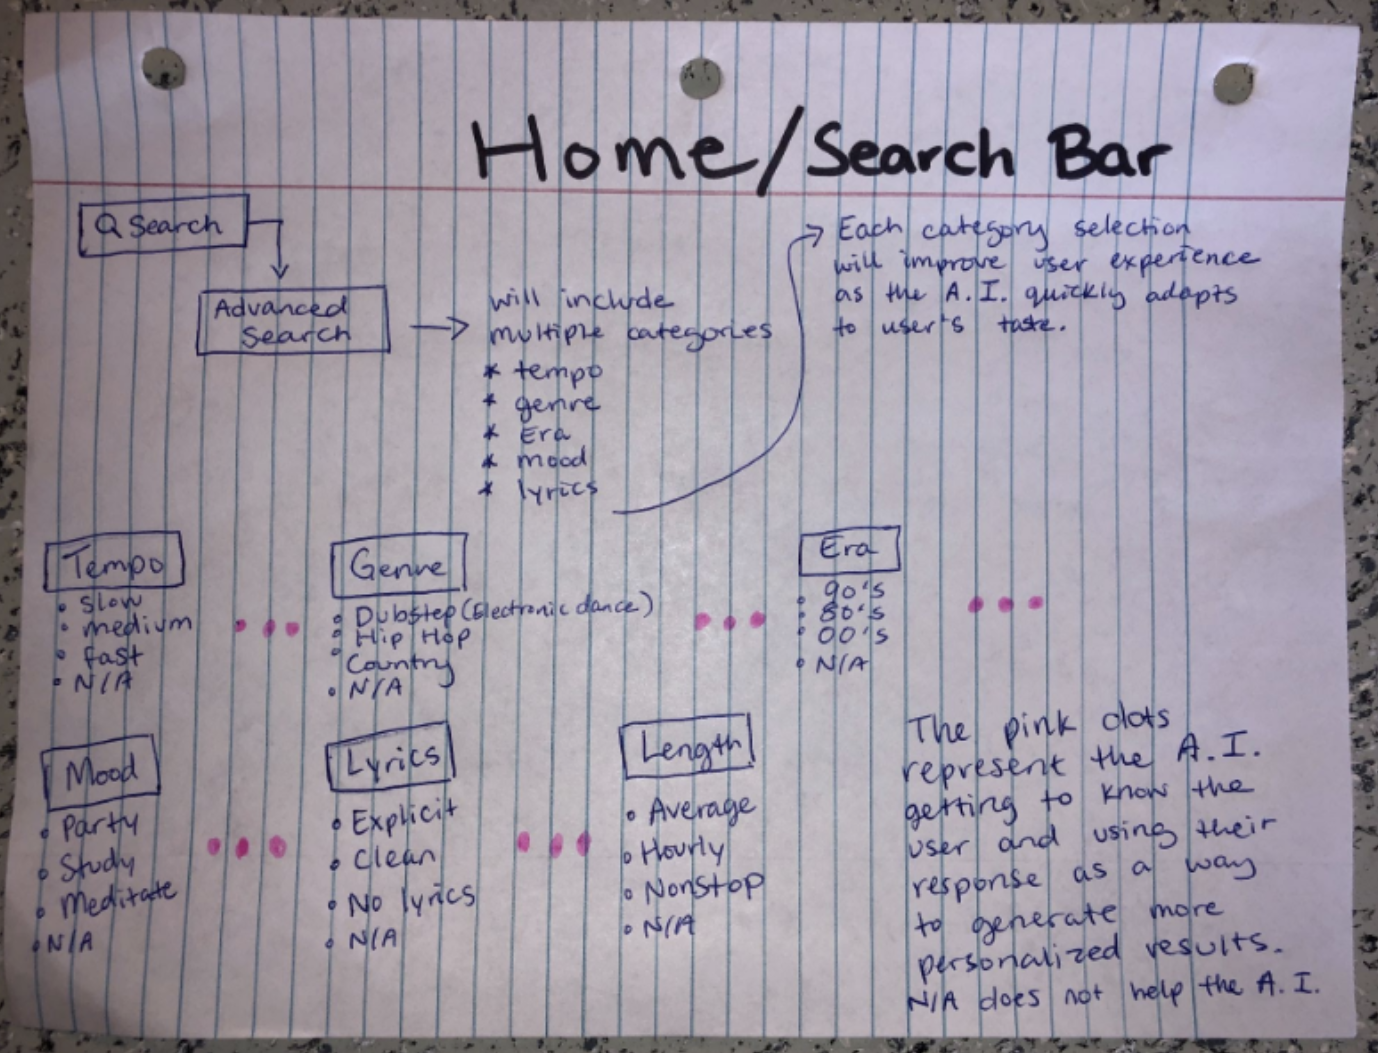 Home/Search Bar
Q Search
Advanced
Search
will include
multiple categories
* tempo
* genre
* Era
* mood
* lyrics
Each category selection
will improve user experience
as the A.I. quickly adapts
to user's taste.
Tempo
• slow
• medium
• fast
• N/A
Genre
• Dubstep (Electronic dance)
• Hip Hop
• Country
• N/A
Era
• 90's
• 80's
• 00's
• N/A
Mood
• Party
• Study
• Meditate
• N/A
Lyrics
• Explicit
• Clean
• No lyrics
• N/A
Length
• Average
• Hourly
• Nonstop
• N/A
The pink dots
represent the A.I.
getting to know the
user and using their
response as a way
to generate more
personalized results.
N/A does not help the A.I.